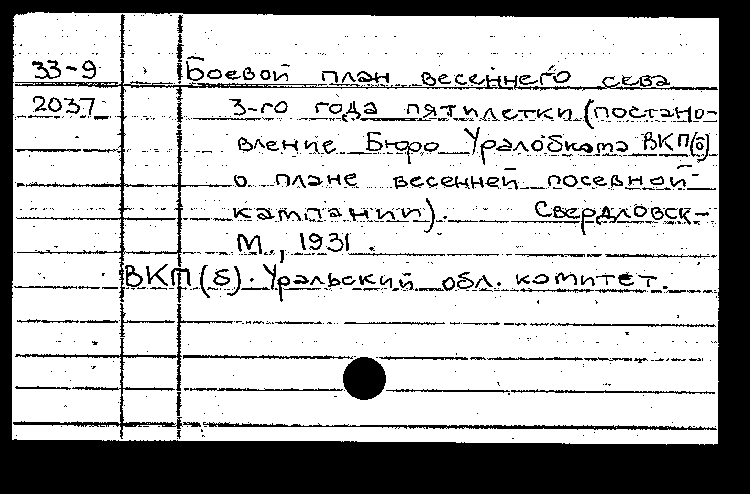 33-9 Боевой план весеннего сева
2037 3-го года пятилетки (постано-
вление Бюро Уралобкома ВКП(б)
о плане весенней посевной
кампании). Свердловск-
М., 1931.
ВКП(б). Уральский обл. комитет.